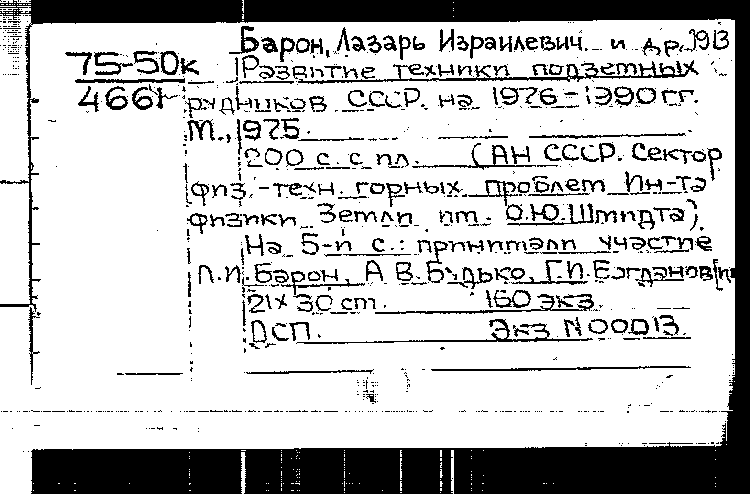 Барон, Лазарь Израилевич и др., 1913
75-50к
Развитие техники подземных
4661
рудников СССР. на 1976-1990 гг.
М., 1975.
200 с. с ил. (АН СССР. Сектор
физ.-техн. горных проблем Ин-та
физики Земли им. О.Ю.Шмидта).
На 5-й с.: принимали участие
Л.И. Барон, А В. Будько, Г.П. Богданов
21×30 cm. 160 экз.
ДСП. Экз N 00013.